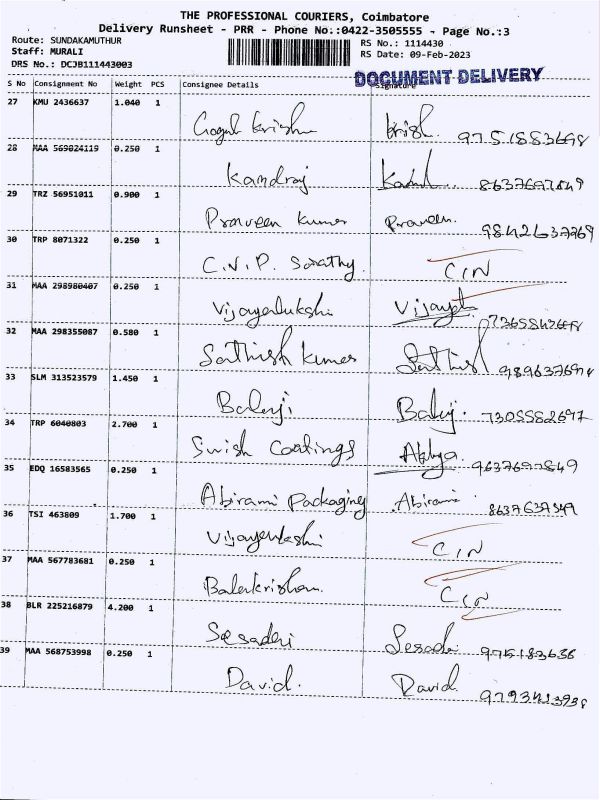 THE PROFESSIONAL COURIERS, Coimbatore
Delivery Runsheet - PRR - Phone No.:0422-3505555 - Page No.:3
Route: SUNDAKAMUTHUR
Staff: MURALI
DRS No.: DCJB111443003
RS No.: 1114430
RS Date: 09-Feb-2023
DOCUMENT DELIVERY
S No Consignment No Weight PCS Consignee Details Signature
27 KMU 2436637 1.040 1
Gogul Krishn Krish. 9751883698
28 MAA 569024119 0.250 1
Kamaraj 8637697849
29 TRZ 56951011 0.900 1
Praveen Kumar Praveen. 9842637769
30 TRP 8071322 0.250 1
C.V.P. Sarathy. CIN
31 MAA 298980407 0.250 1
Vijayalukshi
32 MAA 298355087 0.580 1
Sathish Kumar Sathish
33 SLM 313523579 1.450 1
Balaji Balaji. 7305582697
34 TRP 6040803 2.700 1
Swish Coatings 9637697849
35 EDQ 16583565 0.250 1
Abirami Packaging Abirami
36 TSI 463809 1.700 1
Vijayenlashi CIN
37 MAA 567783681 0.250 1
CIN
38 BLR 225216879 4.200 1
Sesaderi 975183636
39 MAA 568753998 0.250 1
David. David.